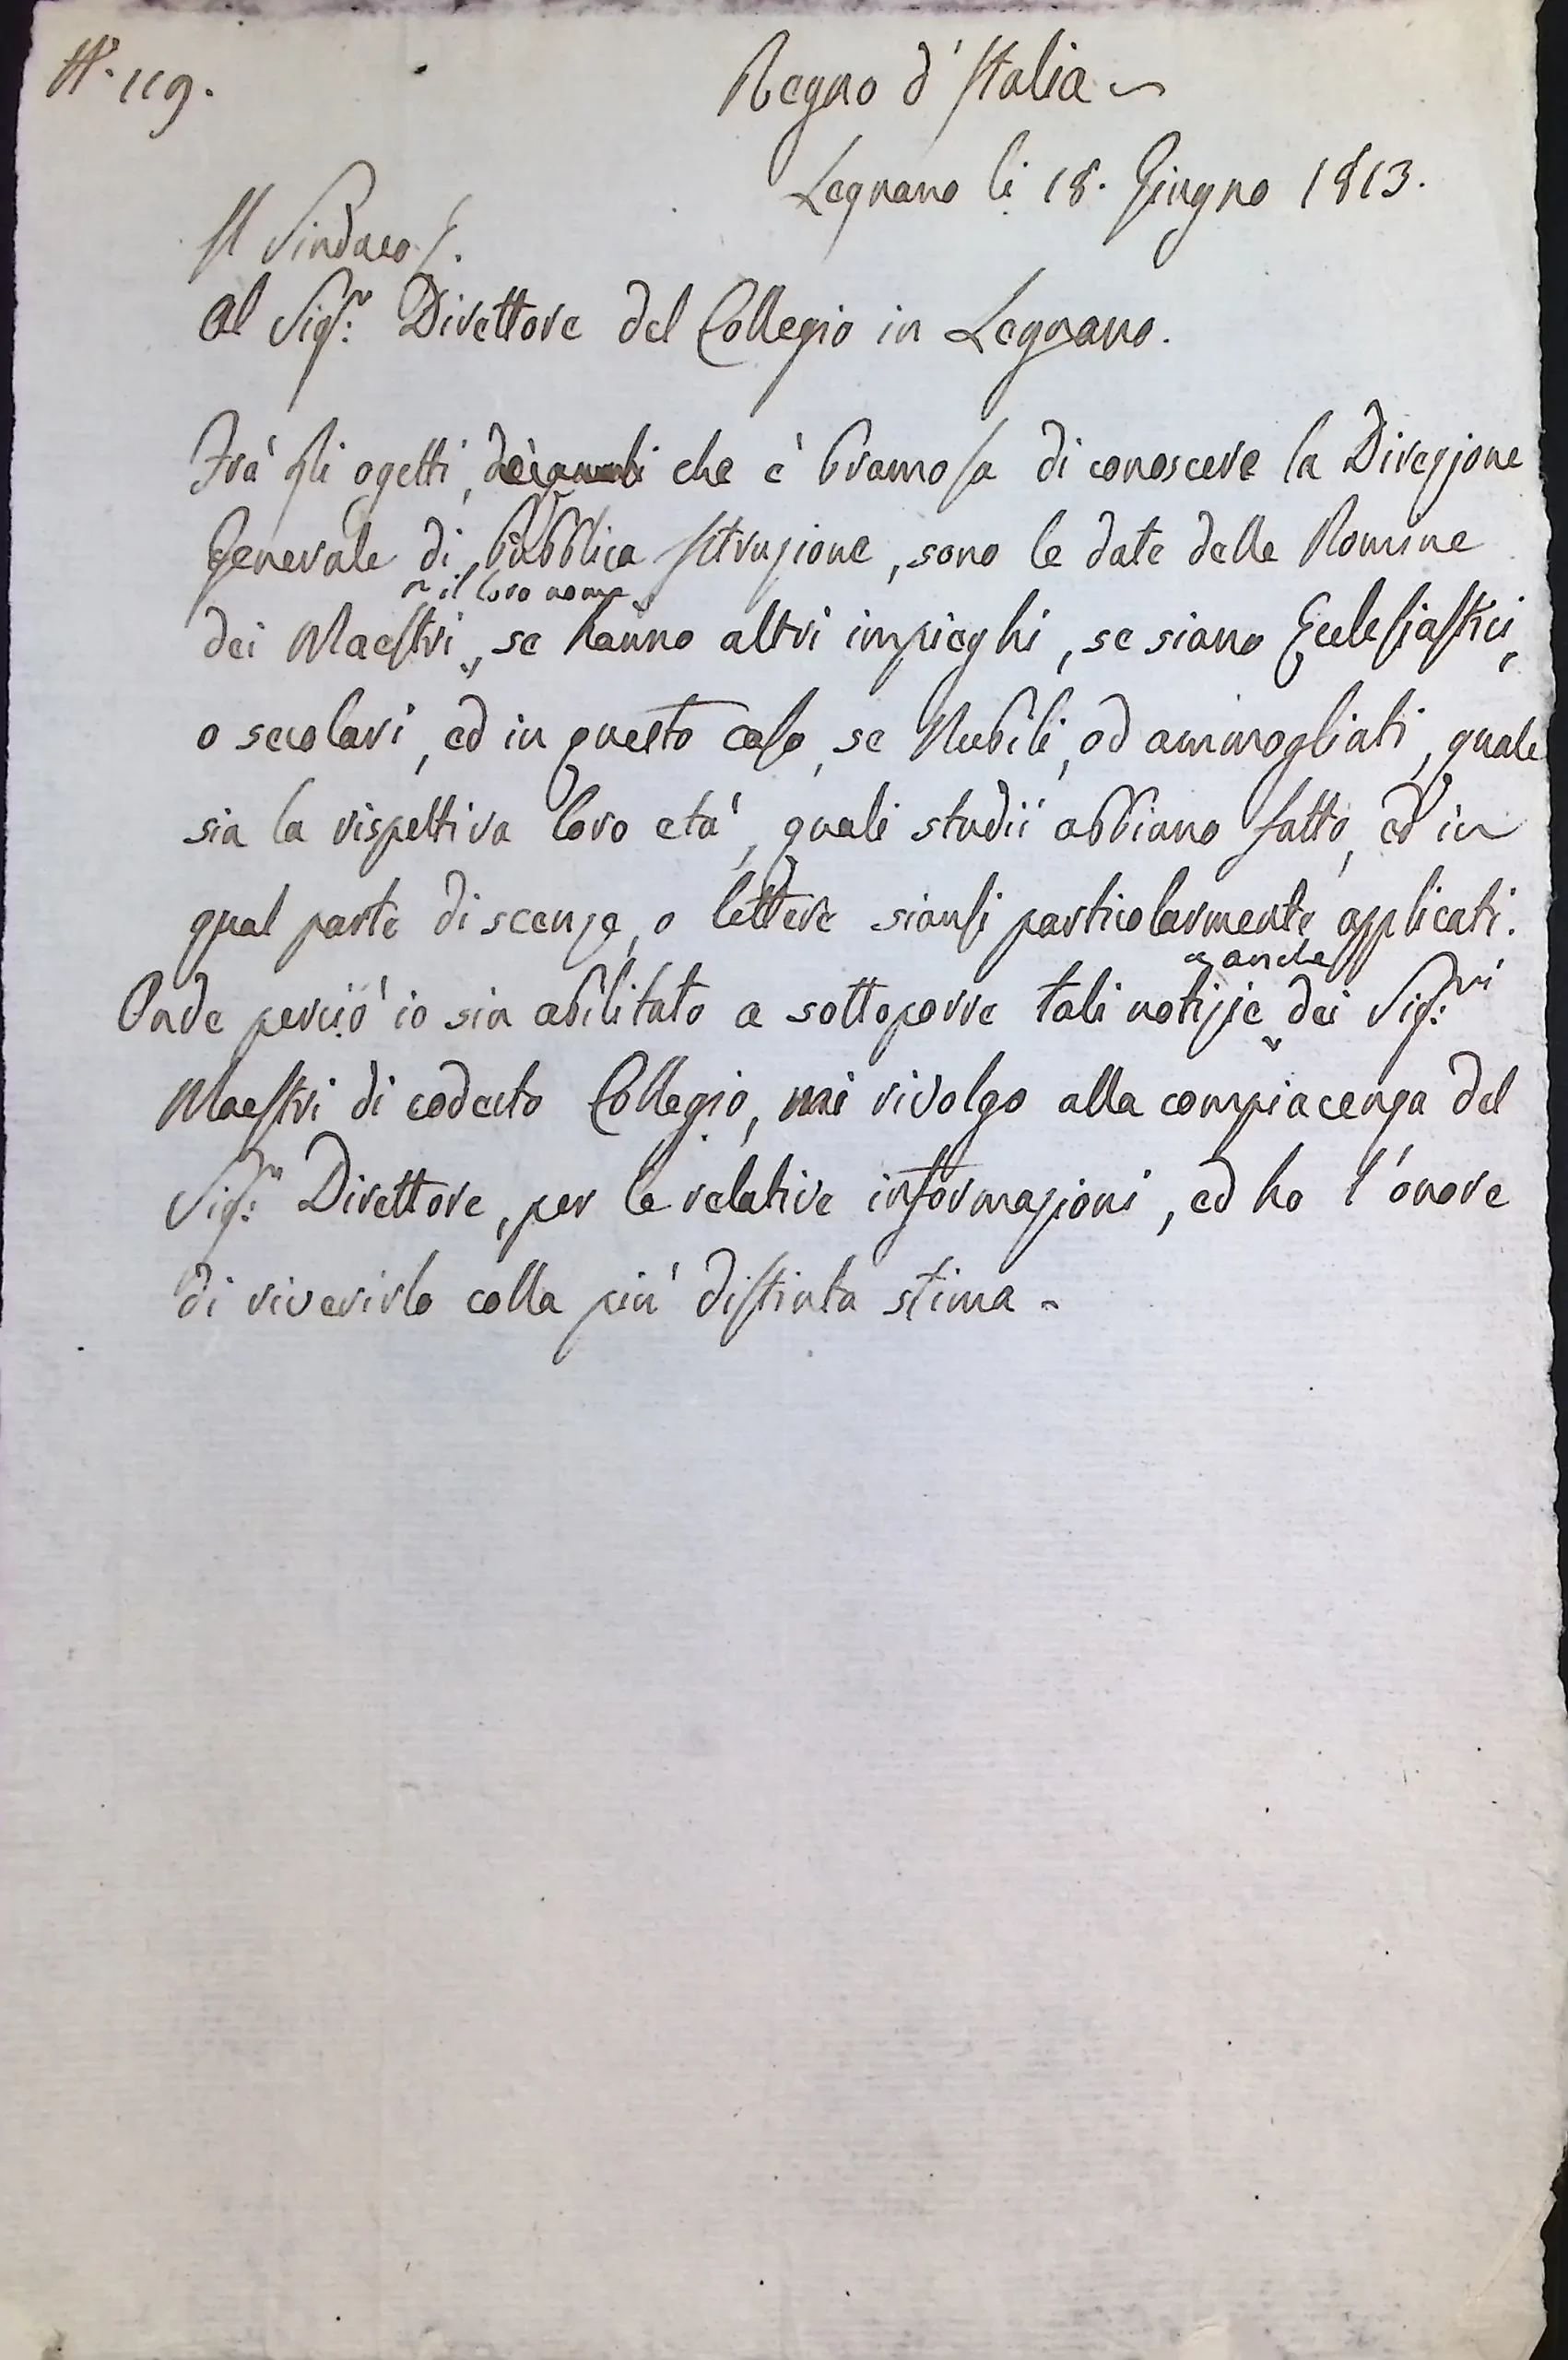 N. 119.
Regno d'Italia
Legnano li 18. Giugno 1813.
Il Sindaco f.
Al Sigr. Direttore del Collegio in Legnano.
Frà gli ogetti, che è bramosa di conoscere la Direzione
Generale di pubblica Istruzione, sono le date delle Nomine
e il loro nome
dei Maestri, se hanno altri impieghi, se siano Ecclesiastici,
o secolari, ed in questo caso, se Nubili, od ammogliati, quale
sia la rispettiva loro età, quali studii abbiano fatto, ed in
qual parte di scenze, o lettere siansi particolarmente applicati.
anche
Onde perciò io sia abilitato a sottoporre tali notizie dei Sigri.
Maestri di codesto Collegio, mi rivolgo alla compiacenza del
Sigr. Direttore, per le relative informazioni, ed ho l'onore
di riverirlo colla più distinta stima